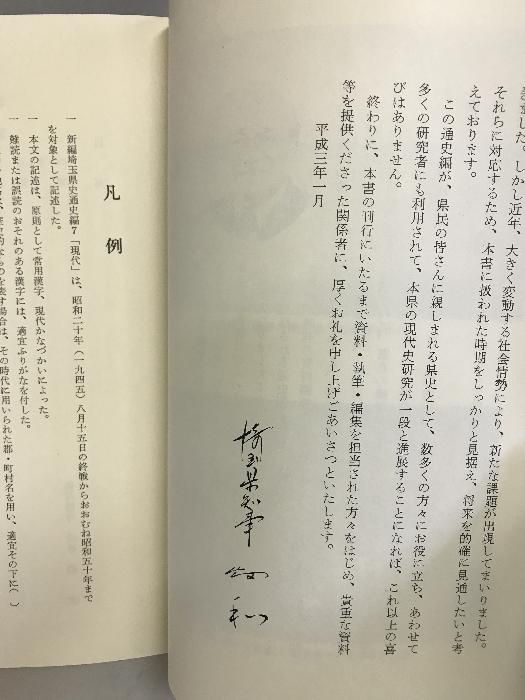 きました。しかし近年、大きく変動する社会情勢により、新たな課題が出現してまいりました。
それらに対応するため、本書に扱われた時期をしっかりと見据え、将来を的確に見通したいと考
えております。
この通史編が、県民の皆さんに親しまれる県史として、数多くの方々にお役に立ち、あわせて
多くの研究者にも利用されて、本県の現代史研究が一段と進展することになれば、これ以上の喜
びはありません。
終わりに、本書の刊行にいたるまで資料・執筆・編集を担当された方々をはじめ、貴重な資料
等を提供くださった関係者に、厚くお礼を申し上げごあいさつといたします。
平成三年一月
埼玉県知事 畑 和
凡例
一 新編埼玉県史通史編7「現代」は、昭和二十年(一九四五)八月十五日の終戦からおおむね昭和五十年まで
を対象として記述した。
一 本文の記述は、原則として常用漢字、現代かなづかいによった。
一 難読または誤読のおそれのある漢字には、適宜ふりがなを付した。
を表す場合は、その時代に用いられた郡・町村名を用い、適宜その下に( )